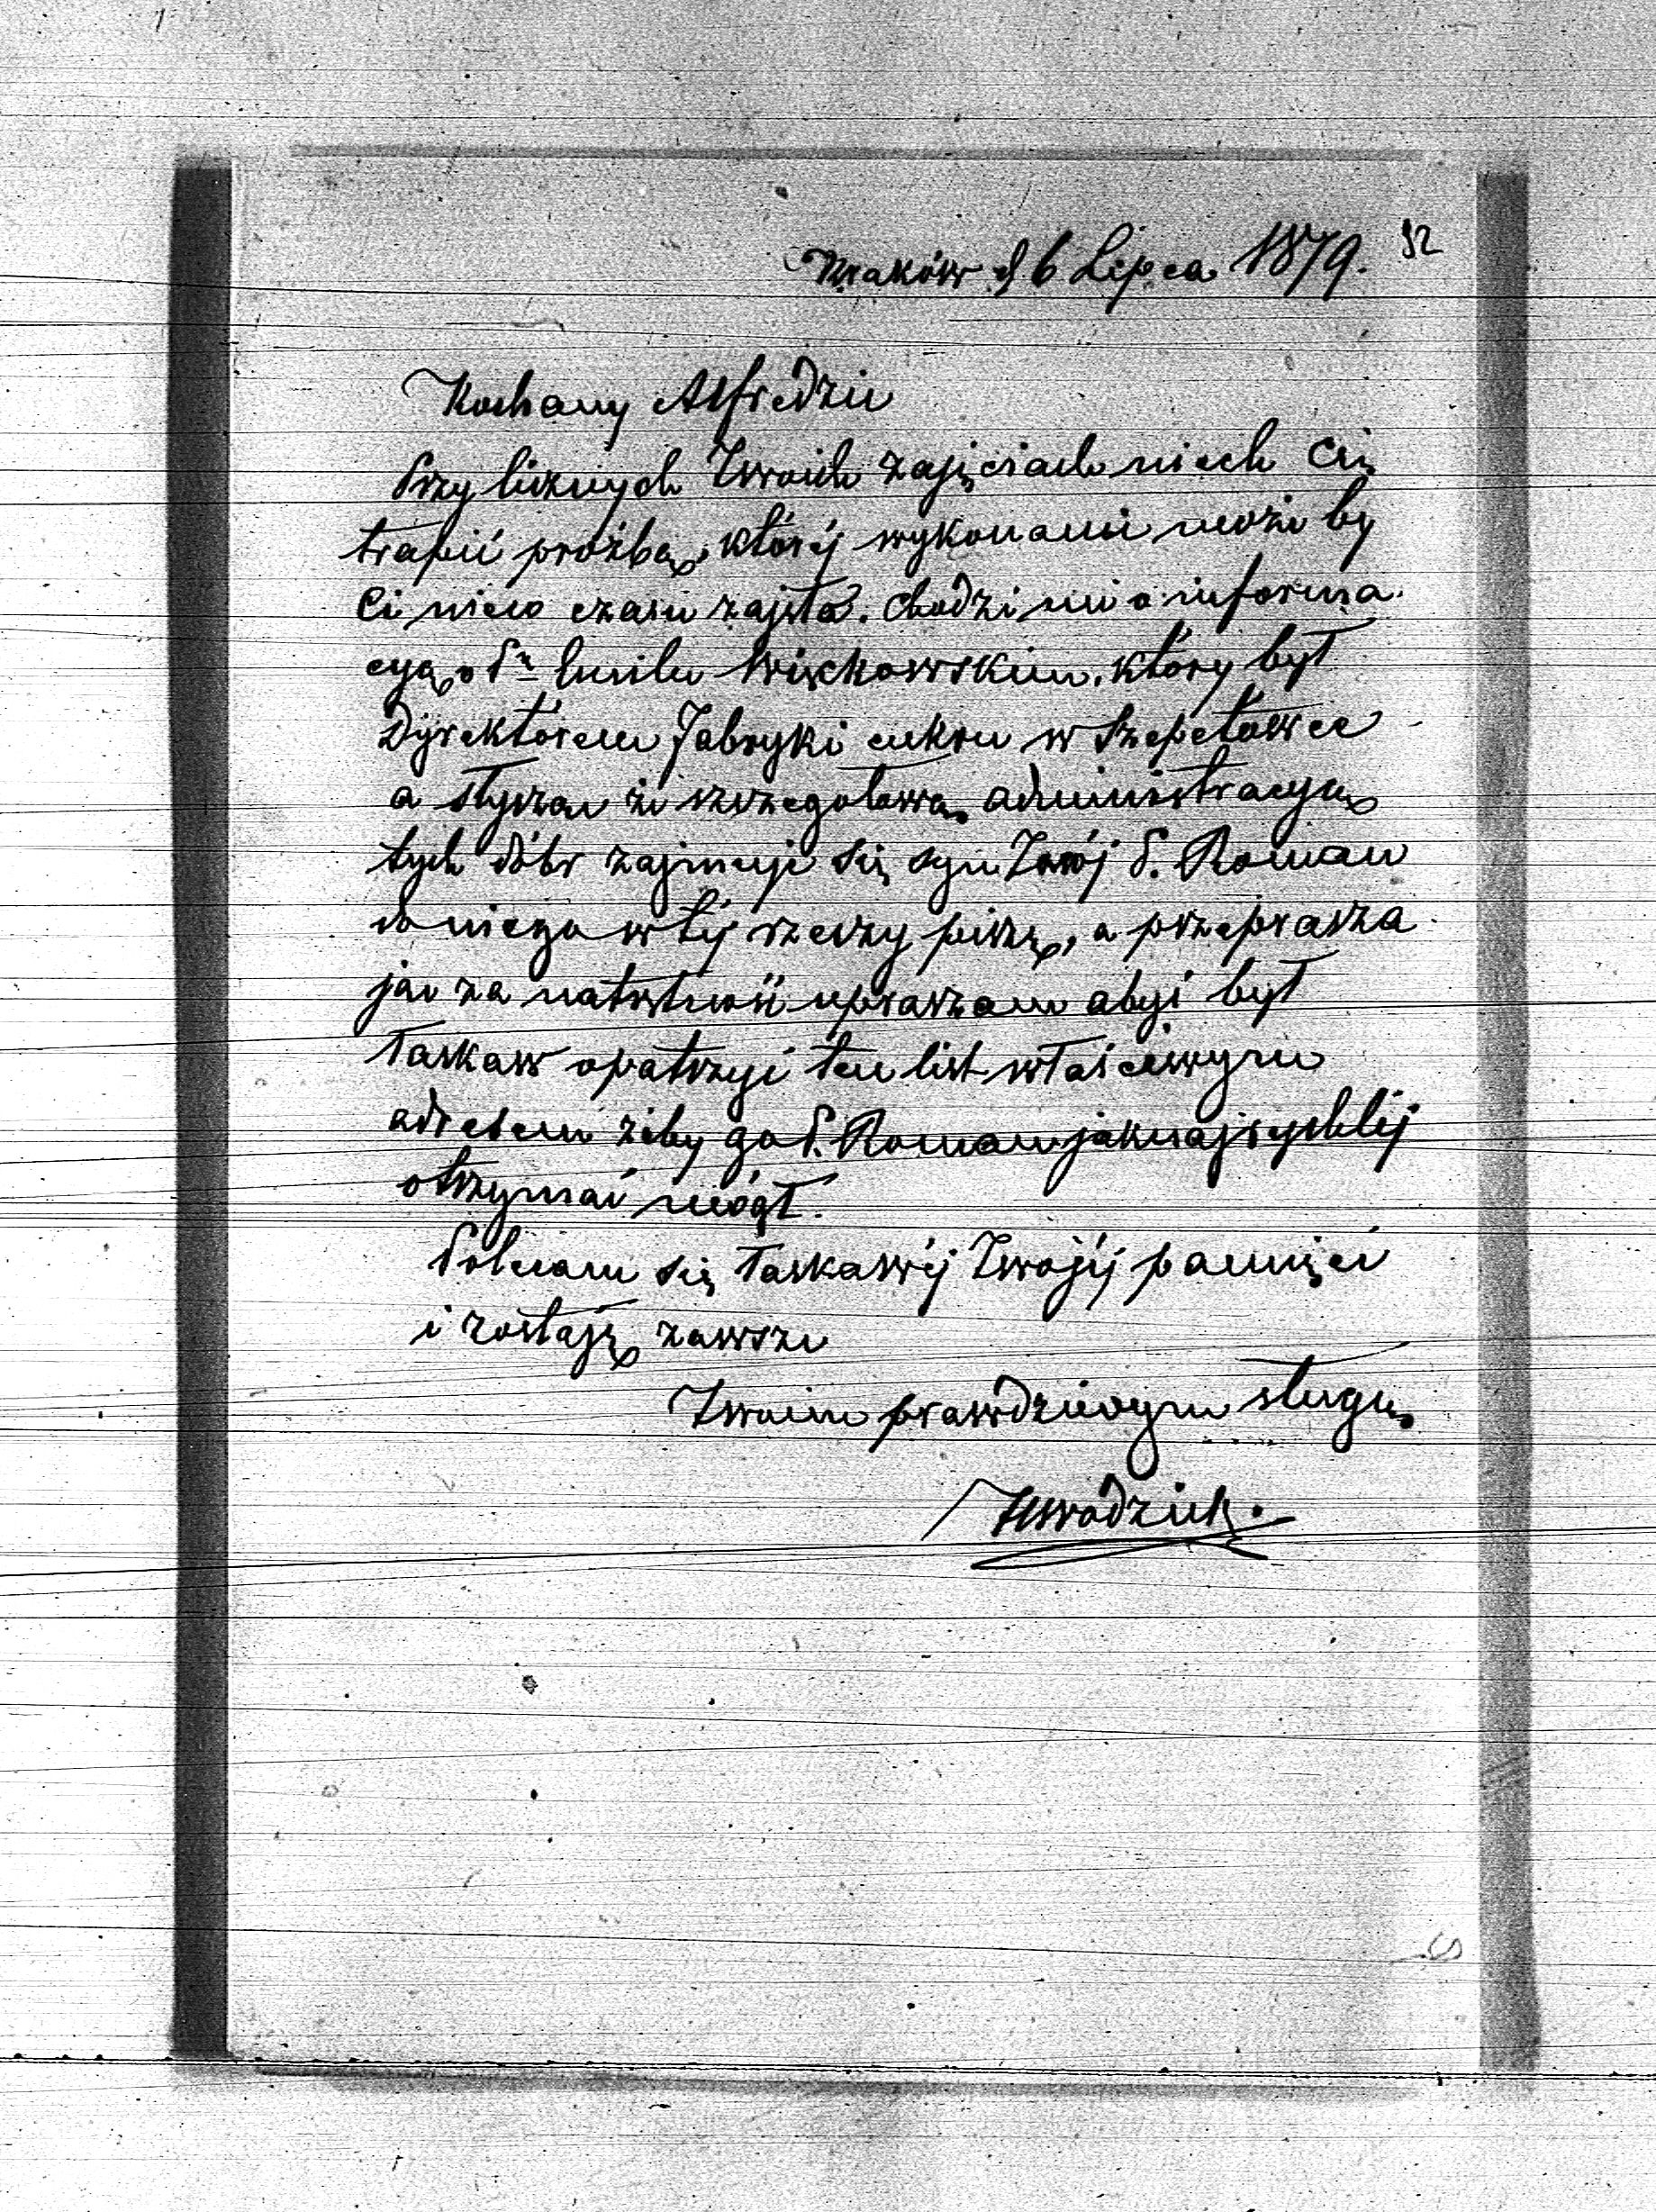 Kraków d 6 Lipca 1879. 92
Kochany Alfredzie
Przy licznych Twoich zajęciach niech Cię
trapić prośbą, któréj wykonanie może by
Ci nieco czasu zajęło. Chodzi mi o informa
cyą o Pn Emilu Więckowskim, który był
Dyrektorem Fabryki cukru w Szepetowce
a słyszau że szczegołową administracyą
tych dóbr zajmuje się syn Twój P. Roman
do niego w téj rzeczy piszę, a przeprasza
jąc za natrętność upraszam abyś był
łaskaw opatrzyć ten list właściwym
adresem żeby go P. Roman jaknajrychléj
otrzymać mógł.
Polecam się łaskawéj Twojéj pamięci
i zostaję zawsze
Twoim prawdziwym sługą